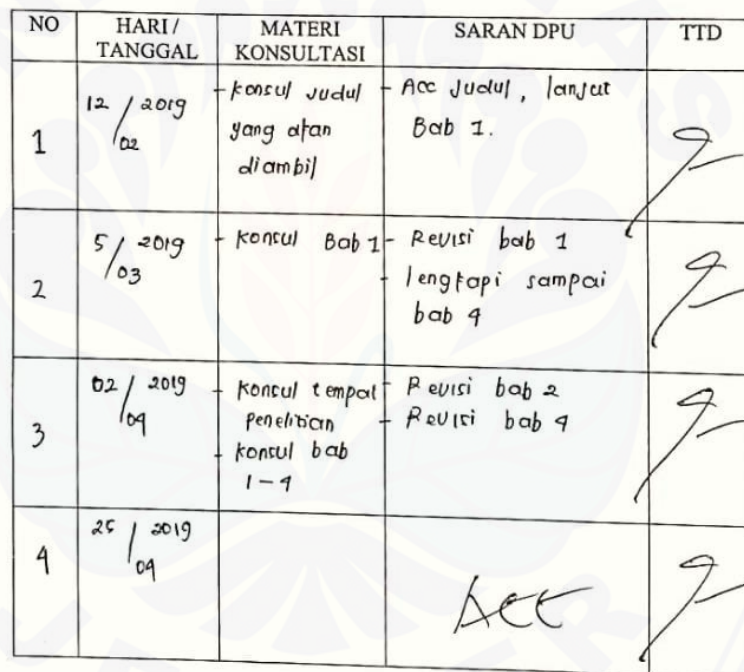 NO HARI / TANGGAL MATERI KONSULTASI SARAN DPU TTD
1
12 / 02 2019
- konsul Judul
yang akan
diambil
- Acc Judul, lanjut
Bab 1.
2
5 / 03 2019
- konsul Bab 1
- Revisi bab 1
- lengkapi sampai
bab 4
3
02 / 04 2019
- konsul tempat
penelitian
- konsul bab
1-4
- Revisi bab 2
- Revisi bab 4
4
25 / 04 2019
Acc